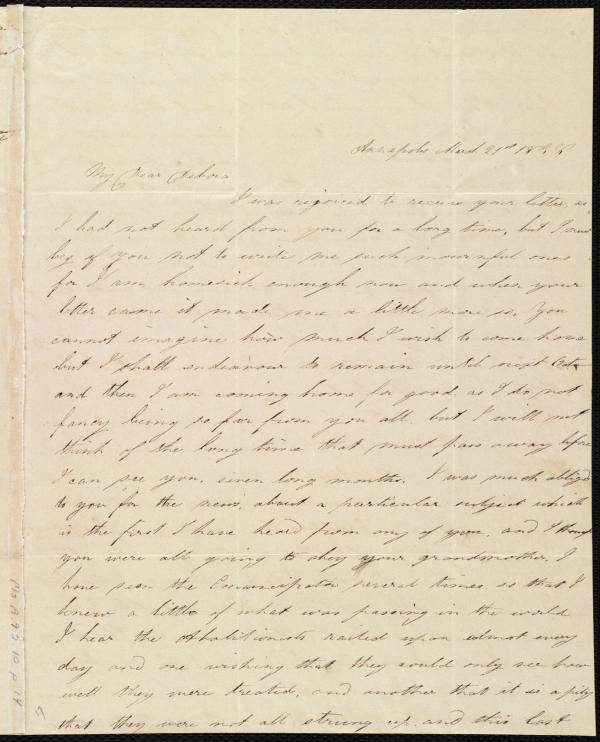 Annapolis March 21st 183
My Dear Debora
I was rejoiced to receive your letter, as
I had not heard from you for a long time, but I must
beg of you not to write me such mournful ones
for I am homesick enough now and when your
letter came it made me a little more so. You
cannot imagine how much I wish to come home
but I shall endeavour to remain until next Oct
and then I am coming home for good as I do not
fancy being so far from you all. but I will not
think of the long time that must pass away before
I can see you, seven long months. I was much obliged
to you for the news, about a particular subject which
is the first I have heard from any of you, and I thought
you were all going to obey your grandmother. I
have seen the Emancipator several times, so that I
knew a little of what was passing in the world
I hear the Abolitionists railed upon almost every
day and one wishing that they could only see how
well they were treated, and another that it is a pity
that they were not all strung up. and this last
Ms.A.9.2.10 p.14